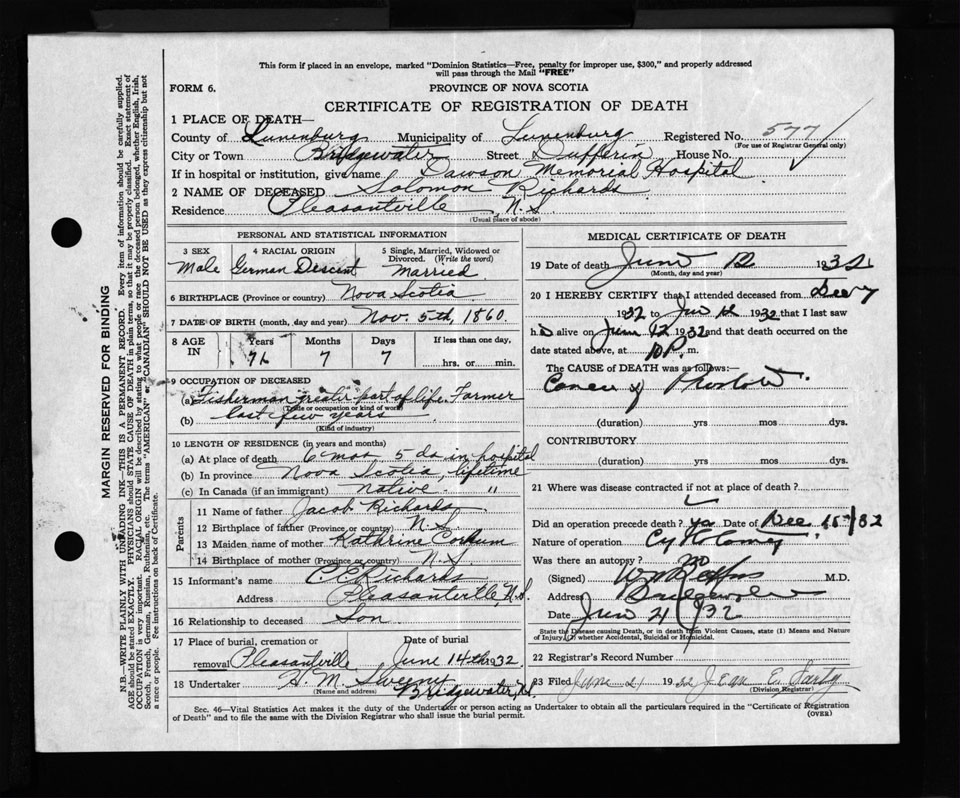 This form if placed in an envelope, marked "Dominion Statistics—Free, penalty for improper use, $300," and properly addressed
will pass through the Mail "FREE"
FORM 6.
PROVINCE OF NOVA SCOTIA
CERTIFICATE OF REGISTRATION OF DEATH
1 PLACE OF DEATH—
County of Lunenburg Municipality of Lunenburg Registered No. 577
(For use of Registrar General only)
City or Town Bridgewater Street Dufferin House No.
If in hospital or institution, give name Dawson Memorial Hospital
2 NAME OF DECEASED Solomon Richards
Residence Pleasantville, N.S.
(Usual place of abode)
PERSONAL AND STATISTICAL INFORMATION
3 SEX 4 RACIAL ORIGIN 5 Single, Married, Widowed or Divorced. (Write the word)
Male German Descent Married
6 BIRTHPLACE (Province or country) Nova Scotia
7 DATE OF BIRTH (month, day and year) Nov. 5th, 1860.
8 AGE IN Years Months Days If less than one day,
71 7 7 hrs. or min.
9 OCCUPATION OF DECEASED
(a) Fisherman greater part of life. Farmer
(Trade or occupation or kind of work)
(b) last few years
(Kind of industry)
10 LENGTH OF RESIDENCE (in years and months)
(a) At place of death 6 mos 5 ds in hospital
(b) In province Nova Scotia, lifetime
(c) In Canada (if an immigrant) native "
Parents
11 Name of father Jacob Richards
12 Birthplace of father (Province or country) N.S.
13 Maiden name of mother Kathrine Corkum
14 Birthplace of mother (Province or country) N.S.
15 Informant's name Richards
Address Pleasantville, N.S.
16 Relationship to deceased Son
17 Place of burial, cremation or removal Pleasantville
Date of burial June 14th 1932
18 Undertaker H. M. Sweeny
(Name and address) Bridgewater, N.S.
MEDICAL CERTIFICATE OF DEATH
19 Date of death June 12 1932
(Month, day and year)
20 I HEREBY CERTIFY that I attended deceased from Dec 7
1932 to Jun 12 1932 that I last saw
h alive on June 12 1932 and that death occurred on
date stated above, at 10 P. m.
The CAUSE OF DEATH was as follows:—
Cancer of Prostate
(duration) yrs mos dys.
CONTRIBUTORY
(duration) yrs mos dys.
21 Where was disease contracted if not at place of death?
Did an operation precede death? yes Date of Dec 15 /32
Nature of operation Cystotomy
Was there an autopsy? no
(Signed) M.D.
Address Bridgewater
Date Jun 21 /32
State the Disease causing Death, or in death from Violent Causes, state (1) Means and Nature
of Injury, (2) whether Accidental, Suicidal or Homicidal.
22 Registrar's Record Number
23 Filed June 21 1932 Jean E.
(Division Registrar)
Sec. 46—Vital Statistics Act makes it the duty of the Undertaker or person acting as Undertaker to obtain all the particulars required in the "Certificate of Registration
of Death" and to file the same with the Division Registrar who shall issue the burial permit.
(OVER)
MARGIN RESERVED FOR BINDING
N.B.—WRITE PLAINLY WITH UNFADING INK—THIS IS A PERMANENT RECORD. Every item of information should be carefully supplied.
AGE should be stated EXACTLY. PHYSICIANS should STATE CAUSE OF DEATH in plain terms, so that it may be properly classified. Exact statement of
OCCUPATION is very important. RACIAL ORIGIN will be described by stating to what people or race the deceased person belonged, whether English, Irish,
Scotch, French, German, Russian, Ruthenian, etc. The terms "AMERICAN" or "CANADIAN" SHOULD NOT BE USED as they express citizenship but not
a race or people. See instructions on back of Certificate.